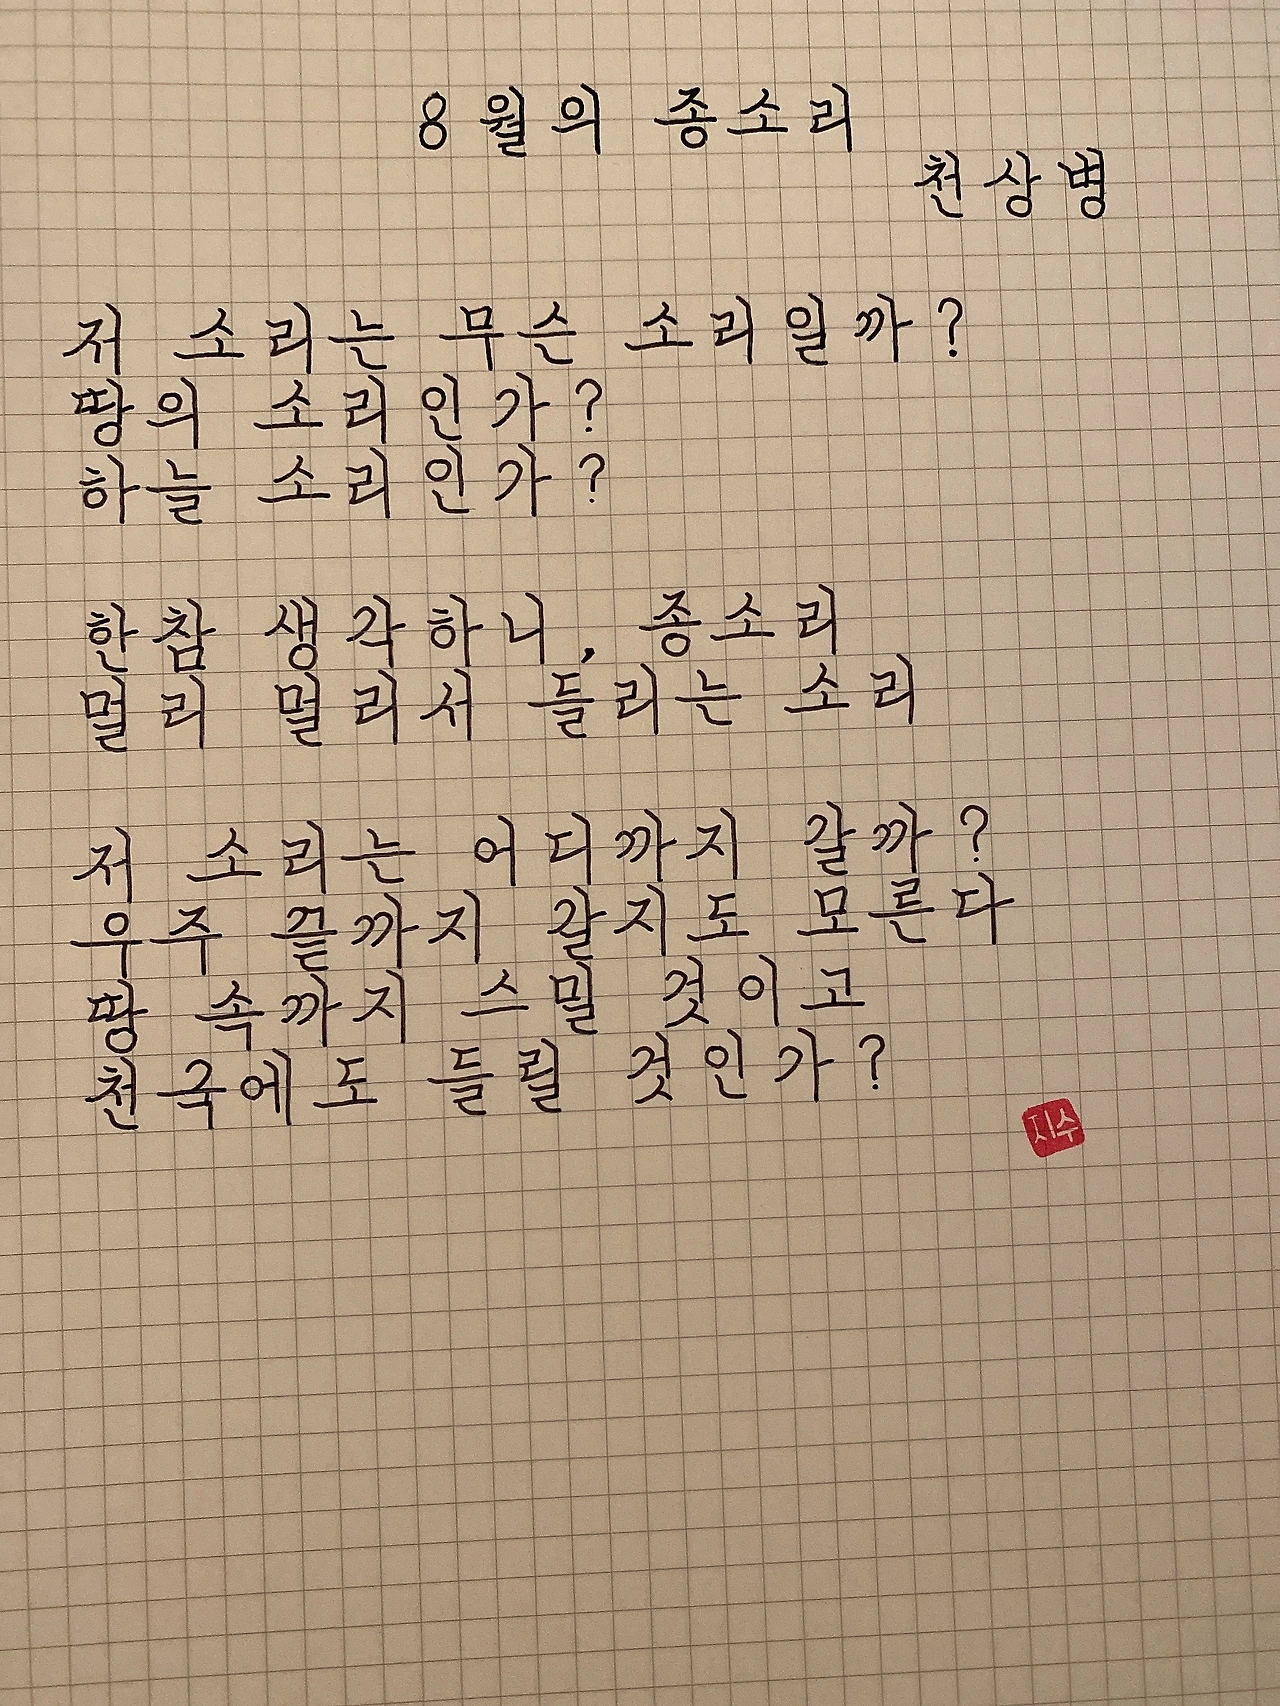 8월의 종소리
천상병
저 소리는 무슨 소리일까?
땅의 소리인가?
하늘 소리인가?
한참 생각하니, 종소리
멀리 멀리서 들리는 소리
저 소리는 어디까지 갈까?
우주 끝까지 갈지도 모른다
땅 속까지 스밀 것이고
천국에도 들릴 것인가?
지수